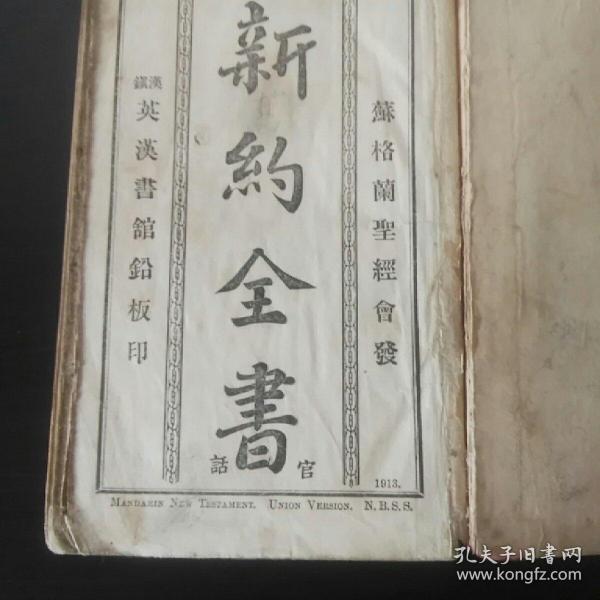 蘇格蘭聖經會發
新約全書
官話
漢鎭
英漢書館鉛板印
1913.
MANDARIN NEW TESTAMENT. UNION VERSION. N.B.S.S.
孔夫子旧书网
www.kongfz.com